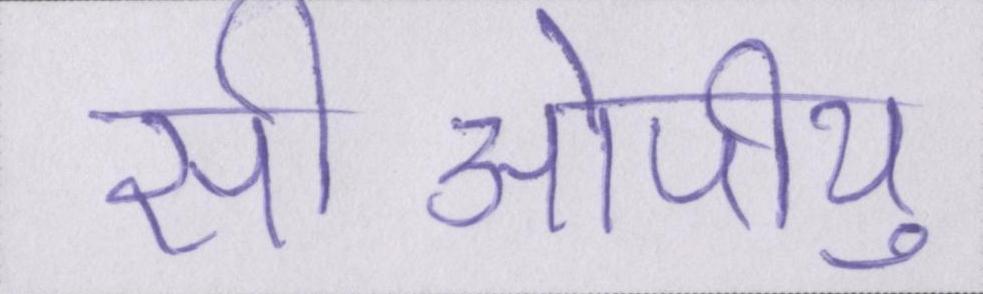 सीओपीयु